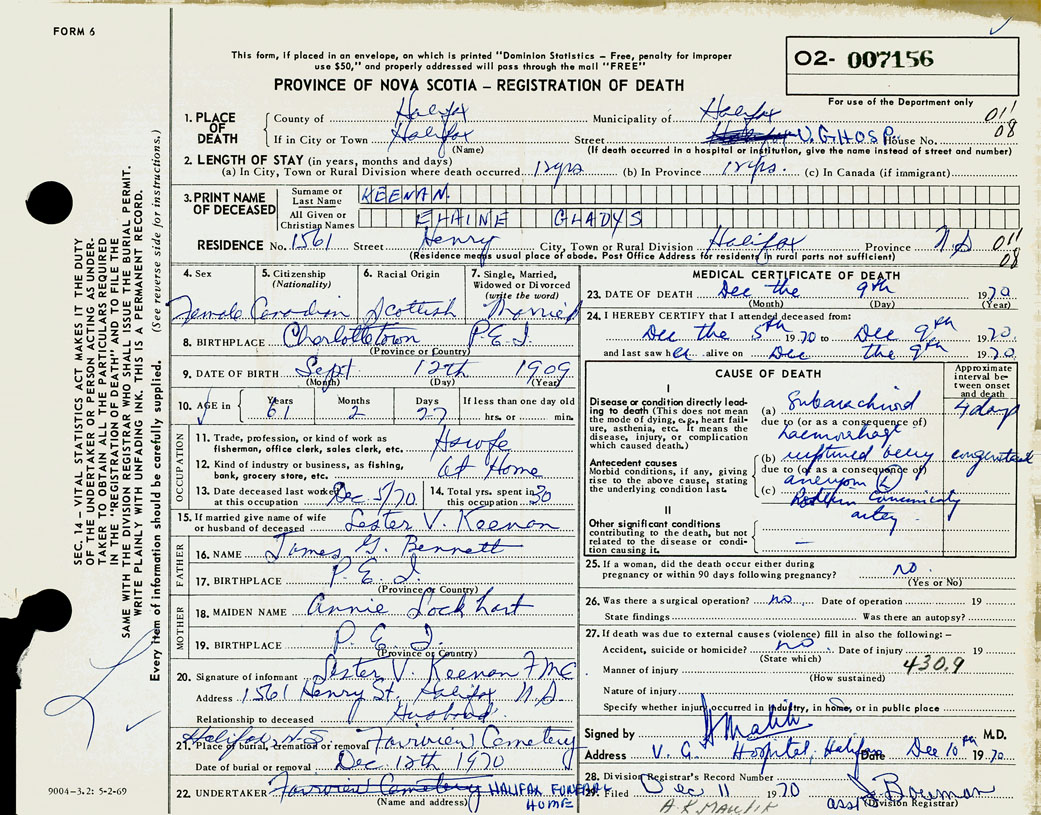 FORM 6
This form, if placed in an envelope, on which is printed "Dominion Statistics – Free, penalty for improper
use $50," and properly addressed will pass through the mail "FREE"
PROVINCE OF NOVA SCOTIA – REGISTRATION OF DEATH
O2- 007156
For use of the Department only
1. PLACE OF DEATH { County of Halifax Municipality of Halifax 01'
If in City or Town Halifax Street V. G HOSP. House No. 08
(Name) (If death occurred in a hospital or institution, give the name instead of street and number)
2. LENGTH OF STAY (in years, months and days)
(a) In City, Town or Rural Division where death occurred 12yrs (b) In Province 12yrs. (c) In Canada (if immigrant)
3. PRINT NAME OF DECEASED { Surname or Last Name KEENAN
All Given or Christian Names ELAINE GLADYS
RESIDENCE No. 1561 Street Henry City, Town or Rural Division Halifax Province N.S 01'
(Residence means usual place of abode. Post Office Address for residents in rural parts not sufficient) 08
4. Sex 5. Citizenship (Nationality) 6. Racial Origin 7. Single, Married, Widowed or Divorced (write the word)
Female Canadian Scottish Married
8. BIRTHPLACE Charlottetown P.E.I.
(Province or Country)
9. DATE OF BIRTH Sept 12th 1909
(Month) (Day) (Year)
10. AGE in { Years Months Days If less than one day old
61 2 27 hrs. or min.
OCCUPATION
11. Trade, profession, or kind of work as
fisherman, office clerk, sales clerk, etc. Hswfe
12. Kind of industry or business, as fishing,
bank, grocery store, etc. At Home
13. Date deceased last worked at this occupation Dec 5/70 14. Total yrs. spent in this occupation 30
15. If married give name of wife
or husband of deceased Lester V. Keenan
FATHER
16. NAME James G. Bennett
17. BIRTHPLACE P.E.I.
(Province or Country)
MOTHER
18. MAIDEN NAME Annie Lockhart
19. BIRTHPLACE P.E.I.
(Province or Country)
20. Signature of informant Lester V. Keenan FMC
Address 1561 Henry St. Halifax N.S
Relationship to deceased Husband.
Halifax, N.S.
21. Place of burial, cremation or removal Fairview Cemetery
Date of burial or removal Dec 12th 1970
22. UNDERTAKER Fairview Cemetery HALIFAX FUNERAL
(Name and address) HOME
MEDICAL CERTIFICATE OF DEATH
23. DATE OF DEATH Dec the 9th 1970
(Month) (Day) (Year)
24. I HEREBY CERTIFY that I attended deceased from:
Dec the 5th 1970 to Dec 9th 1970
and last saw her alive on Dec the 9th 1970
CAUSE OF DEATH
Approximate interval between onset and death
I
Disease or condition directly leading to death (This does not mean the mode of dying, e.g., heart failure, asthenia, etc. It means the disease, injury, or complication which caused death.)
(a) Subarachnoid 4 days
due to (or as a consequence of)
haemorrhage
Antecedent causes
Morbid conditions, if any, giving rise to the above cause, stating the underlying condition last.
(b) ruptured berry congenital
due to (or as a consequence of)
aneurysm (L)
(c) Posterior Communicating
artery
II
Other significant conditions
contributing to the death, but not related to the disease or condition causing it. –
25. If a woman, did the death occur either during
pregnancy or within 90 days following pregnancy? no.
(Yes or No)
26. Was there a surgical operation? no Date of operation 19
State findings Was there an autopsy?
27. If death was due to external causes (violence) fill in also the following: –
Accident, suicide or homicide? no Date of injury 19
(State which)
Manner of injury 430.9
(How sustained)
Nature of injury
Specify whether injury occurred in industry, in home, or in public place
Signed by M.D.
Address V. G. Hospital, Halifax Date Dec 10th 1970
28. Division Registrar's Record Number
29. Filed Dec 11 1970 Bowman
asst (Division Registrar)
SEC. 14 – VITAL STATISTICS ACT MAKES IT THE DUTY
OF THE UNDERTAKER OR PERSON ACTING AS UNDER-
TAKER TO OBTAIN ALL THE PARTICULARS REQUIRED
IN THE "REGISTRATION OF DEATH" AND TO FILE THE
SAME WITH THE DIVISION REGISTRAR WHO SHALL ISSUE THE BURIAL PERMIT.
WRITE PLAINLY WITH UNFADING INK. THIS IS A PERMANENT RECORD.
Every item of information should be carefully supplied. (See reverse side for instructions.)
9004-3.2: 5-2-69